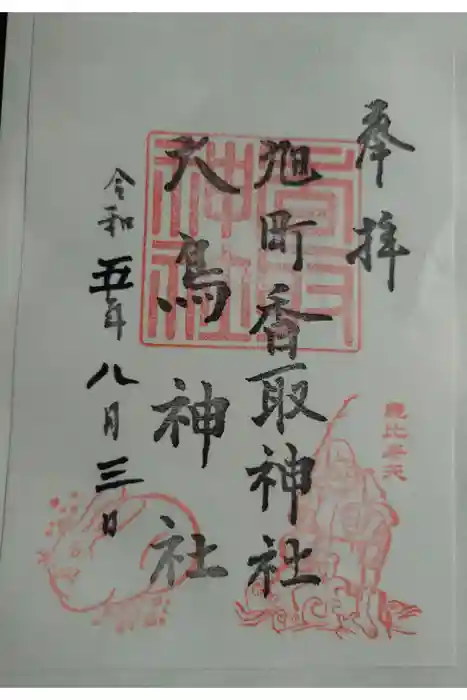 奉拝
旭町香取神社
大鳥神社
令和五年八月三日
香取神社
恵比寿天